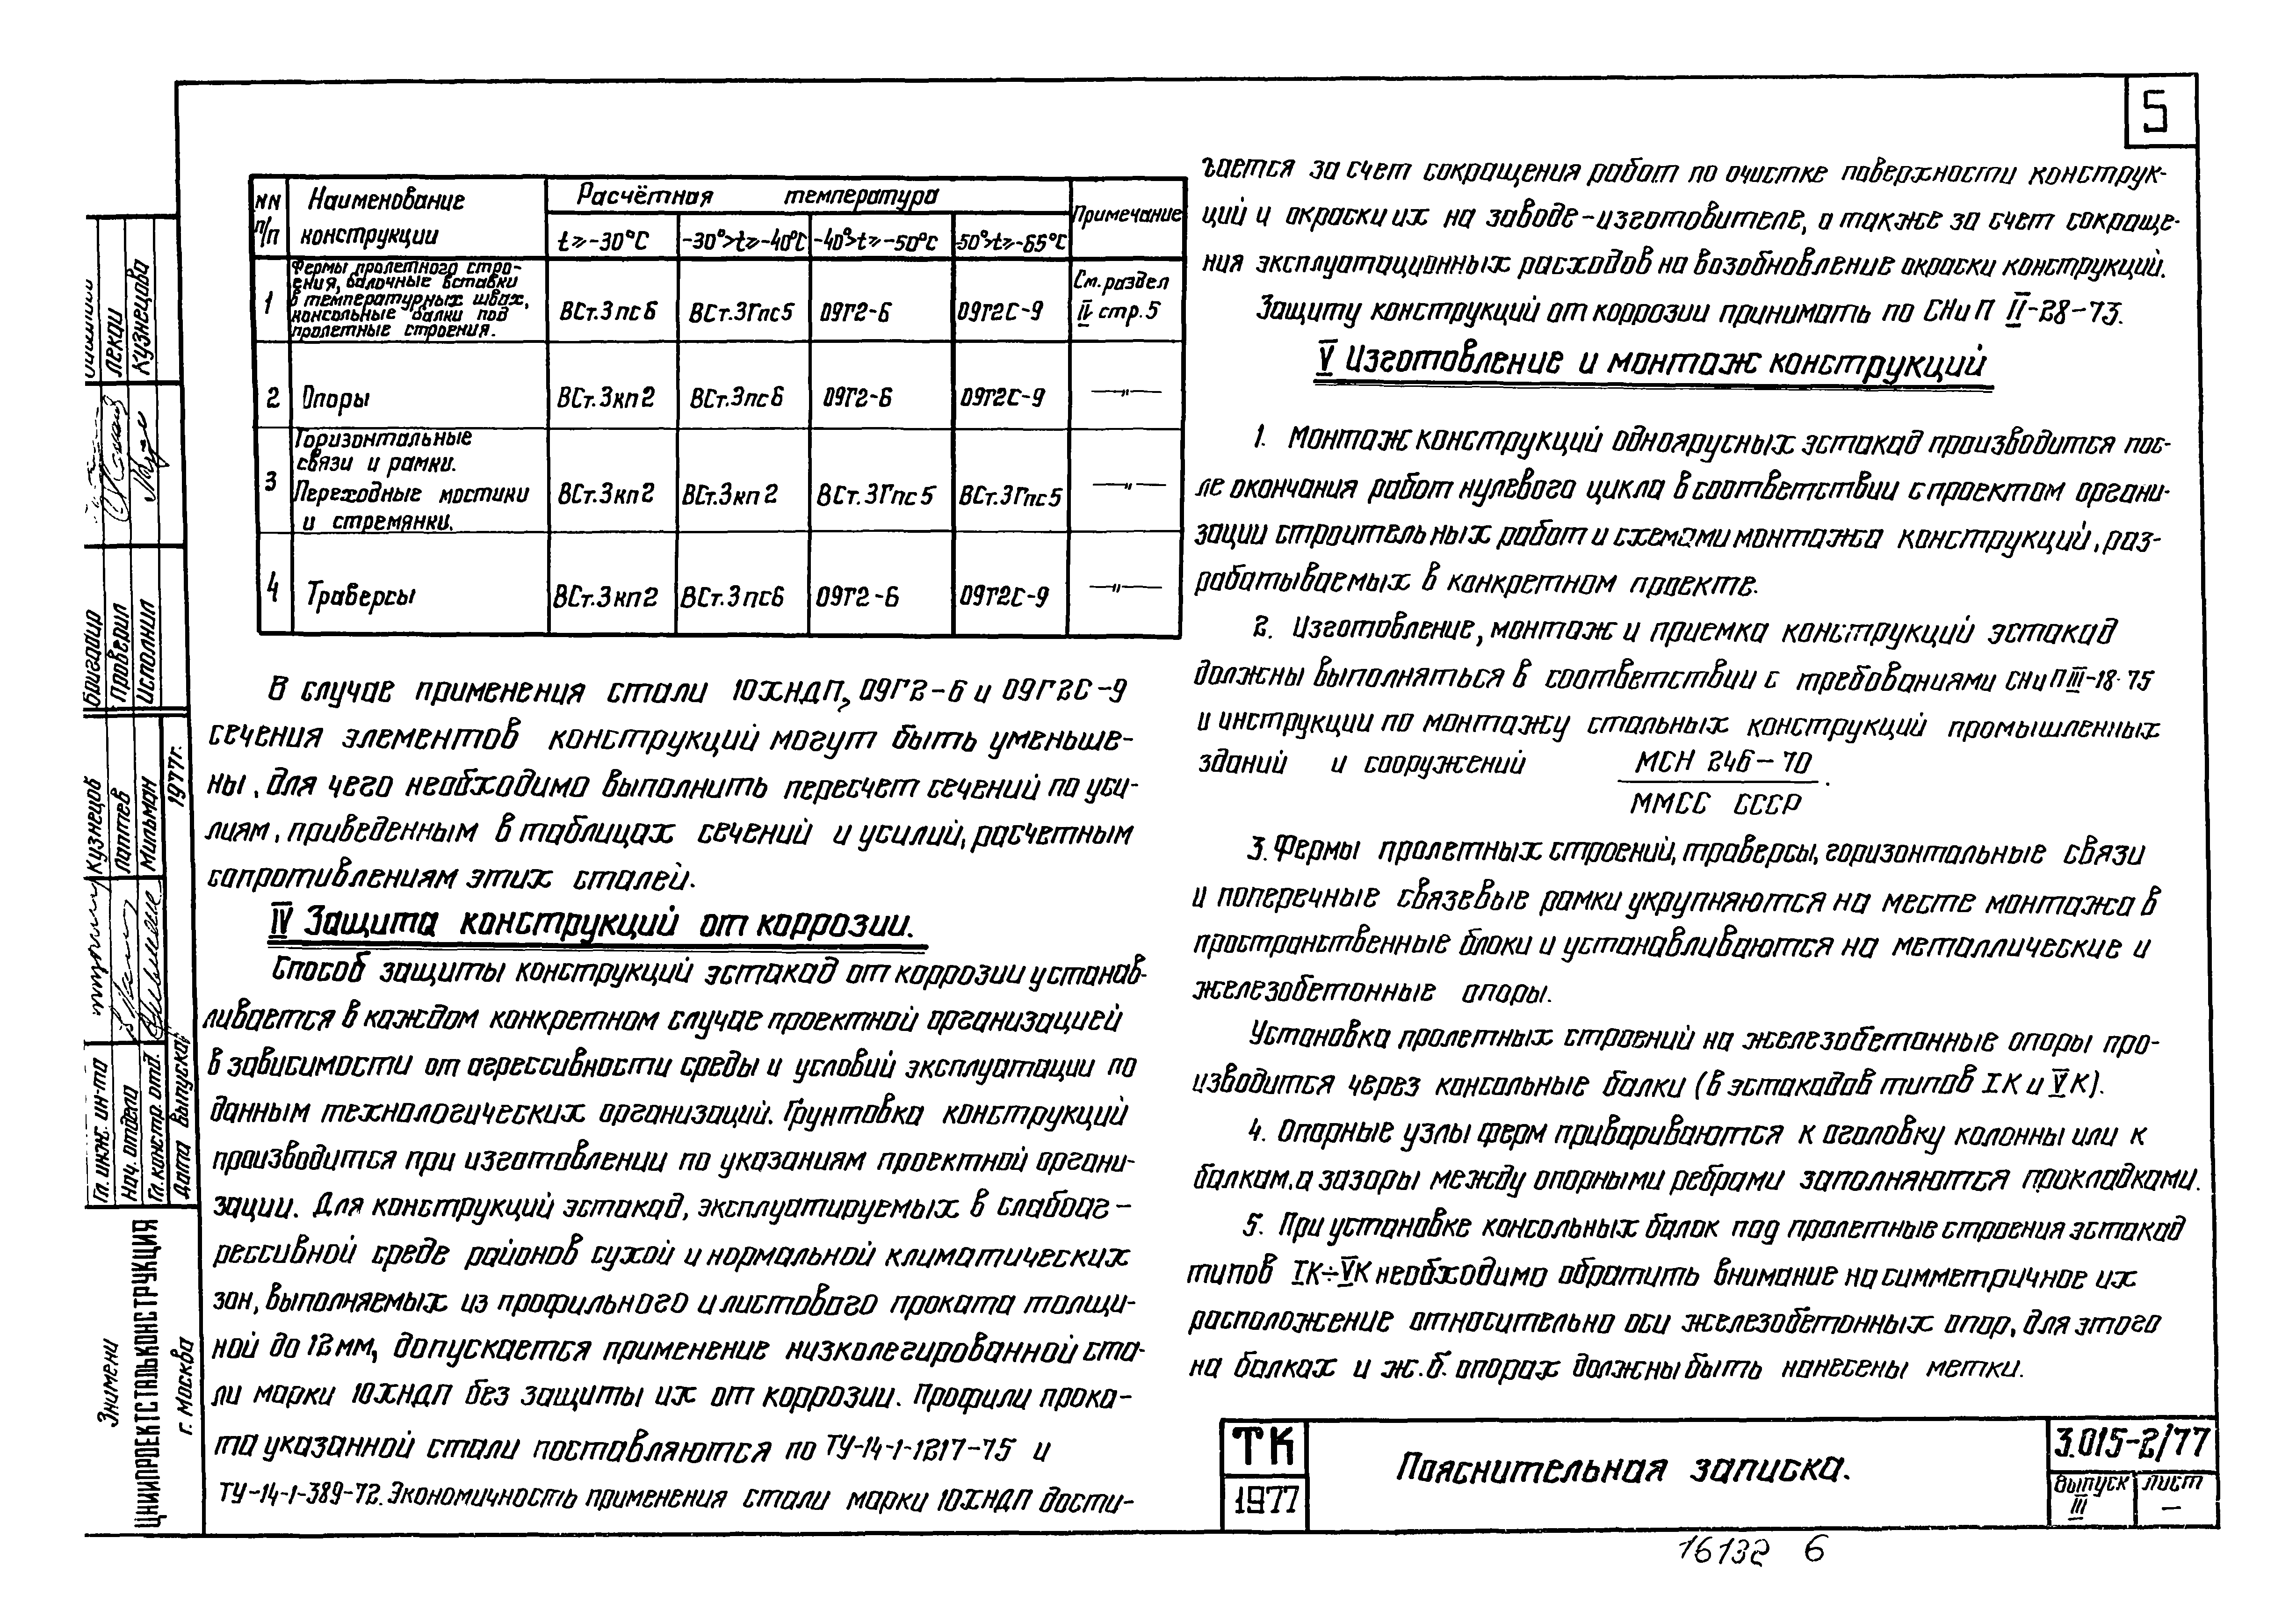 5
NN п/п
Наименование конструкции
Расчётная температура
Примечание
t≥-30°C
-30°>t≥-40°C
-40°>t≥-50°C
-50°>t≥-65°C
1
Фермы пролетного стро-
ения, балочные вставки
в температурных швах,
консольные балки под
пролетные строения.
ВСт.3пс6
ВСт.3Гпс5
09Г2-6
09Г2С-9
См. раздел
IV стр. 5
2
Опоры
ВСт.3кп2
ВСт.3пс6
09Г2-6
09Г2С-9
—"—
3
Горизонтальные
связи и рамки.
Переходные мостики
и стремянки.
ВСт.3кп2
ВСт.3кп2
ВСт.3Гпс5
ВСт.3Гпс5
—"—
4
Траверсы
ВСт.3кп2
ВСт.3пс6
09Г2-6
09Г2С-9
—"—
В случае применения стали 10ХНДП, 09Г2-6 и 09Г2С-9
сечения элементов конструкций могут быть уменьше-
ны, для чего необходимо выполнить пересчет сечений по уси-
лиям, приведенным в таблицах сечений и усилий, расчетным
сопротивлениям этих сталей.
IV Защита конструкций от коррозии.
Способ защиты конструкций эстакад от коррозии устанав-
ливается в каждом конкретном случае проектной организацией
в зависимости от агрессивности среды и условий эксплуатации по
данным технологических организаций. Грунтовка конструкций
производится при изготовлении по указаниям проектной органи-
зации. Для конструкций эстакад, эксплуатируемых в слабоаг-
рессивной среде районов сухой и нормальной климатических
зон, выполняемых из профильного и листового проката толщи-
ной до 12 мм, допускается применение низколегированной ста-
ли марки 10ХНДП без защиты их от коррозии. Профили прока-
та указанной стали поставляются по ТУ-14-1-1217-75 и
ТУ-14-1-389-72. Экономичность применения стали марки 10ХНДП дости-
гается за счет сокращения работ по очистке поверхности конструк-
ций и окраски их на заводе-изготовителе, а также за счет сокраще-
ния эксплуатационных расходов на возобновление окраски конструкций.
Защиту конструкций от коррозии принимать по СНиП II-28-73.
V Изготовление и монтаж конструкций
1. Монтаж конструкций одноярусных эстакад производится пос-
ле окончания работ нулевого цикла в соответствии с проектом органи-
зации строительных работ и схемами монтажа конструкций, раз-
рабатываемых в конкретном проекте.
2. Изготовление, монтаж и приемка конструкций эстакад
должны выполняться в соответствии с требованиями СНиП III-18-75
и инструкции по монтажу стальных конструкций промышленных
зданий и сооружений МСН 246-70
ММСС СССР.
3. Фермы пролетных строений, траверсы, горизонтальные связи
и поперечные связевые рамки укрупняются на месте монтажа в
пространственные блоки и устанавливаются на металлические и
железобетонные опоры.
Установка пролетных строений на железобетонные опоры про-
изводится через консольные балки (в эстакадах типов IК и VК).
4. Опорные узлы ферм привариваются к оголовку колонны или к
балкам, а зазоры между опорными ребрами заполняются прокладками.
5. При установке консольных балок под пролетные строения эстакад
типов IК÷VК необходимо обратить внимание на симметричное их
расположение относительно оси железобетонных опор, для этого
на балках и ж.б. опорах должны быть нанесены метки.
ТК
1977
Пояснительная записка.
3.015-2/77
Выпуск
III
Лист
—
16132 6
Знамени
ЦНИИПРОЕКТСТАЛЬКОНСТРУКЦИЯ
г. Москва
Гл. инж. ин-та
Кузнецов
Нач. отдела
Лаптев
Гл. констр. отд.
Мильман
Дата выпуска
1977г.
Бригадир
Проверил
Лекаи
Исполнил
Кузнецова